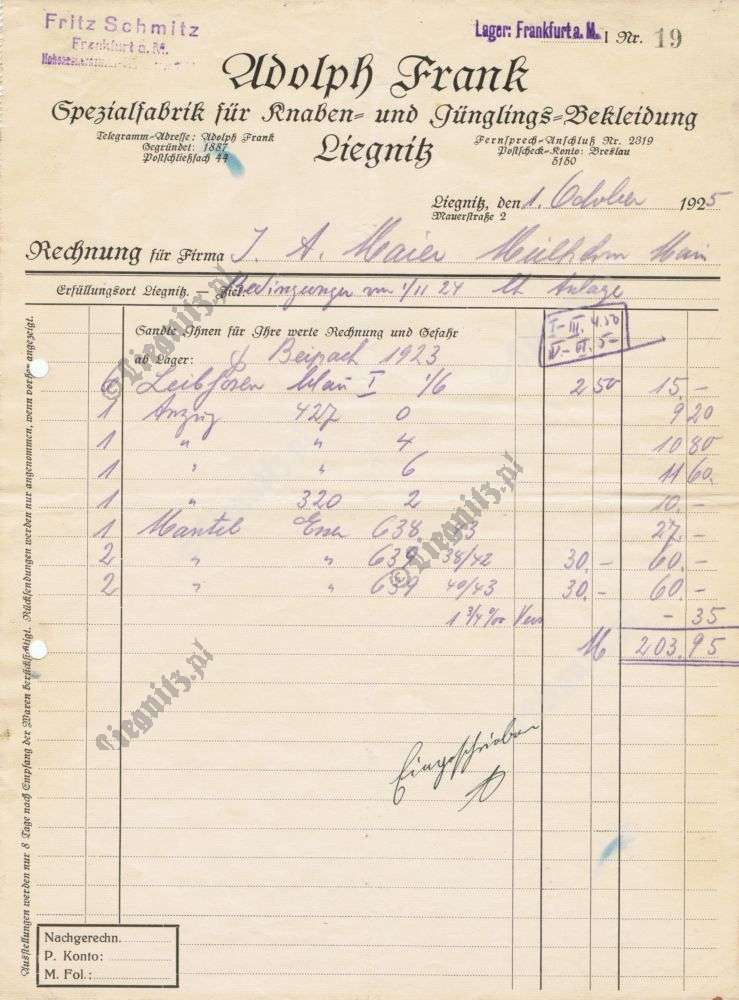 Fritz Schmitz
Frankfurt a. M.
Lager: Frankfurt a. M. I Nr. 19
Adolph Frank
Spezialfabrik für Knaben- und Jünglings-Bekleidung
Telegramm-Adresse: Adolph Frank
Gegründet: 1887
Postschließfach 44
Liegnitz
Fernsprech-Anschluß Nr. 2319
Postscheck-Konto: Breslau
5150
Liegnitz, den 1. Oktober 1925
Mauerstraße 2
Rechnung für Firma J. A. Maier Mülheim Main
Erfüllungsort Liegnitz. — Ziel Bedingungen vom 1/11 24 lt. Anlage
I - III. 4.50
IV - VI. 5 -
Sandte Ihnen für Ihre werte Rechnung und Gefahr
ab Lager: 1923
6 Leibhosen blau I 1/6 2 50 15.-
1 Anzug 427 0 9 20
1 " " 4 10 80
1 " " 6 11 60
1 " 320 2 10.-
1 Mantel 638 33 27.-
2 " " 639 38/42 30.- 60.-
2 " " 639 40/43 30.- 60.-
1 3/4 0/00 Vers - 35
M 203.95
Eingeschrieben
Ausstellungen werden nur 8 Tage nach Empfang der Waren berücksichtigt. Rücksendungen werden nur angenommen, wenn vorher angezeigt.
Nachgerechn.
P. Konto:
M. Fol.:
© Liegnitz.pl
© Liegnitz.pl
Liegnitz.pl